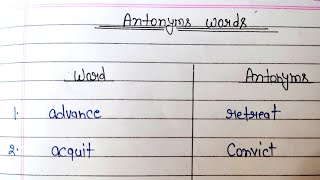 Antonyms words
Word Antonyms
1. advance retreat
2. acquit Convict